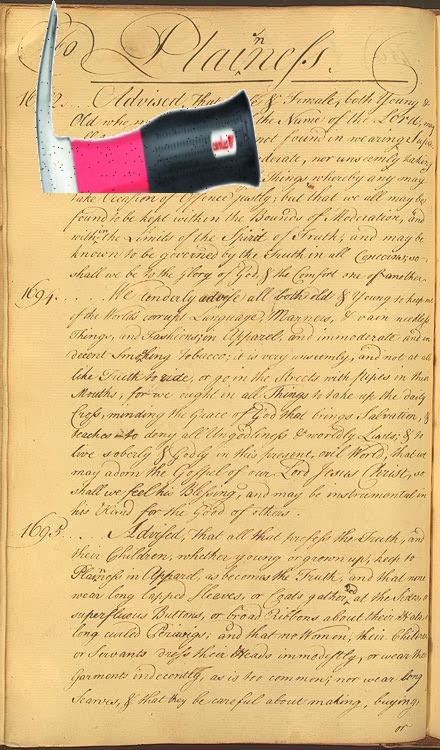 Plainness.
1692. . . Advised, That Male & Female, both Young &
Old who
the Name of the Lord, may
not found in wearing Supe
derate, nor unseemly
Things whereby any may
take Occasion of Offence Justly; but that we all may be
found to be kept within the Bounds of Moderation, and
within the Limits of the Spirit of Truth; and may be
known to be governed by the Truth in all Concerns, so
shall we be to the Glory of God, & the Comfort one of another.
1694. . . . . We tenderly advise all both old & Young to keep
of the World's corrupt Language, Manners, & vain needless
Things, and Fashions, in Apparel, and immoderate and in
decent Smoking Tobacco; it is very unseemly, and not at all
like Truth to ride, or go in the Streets with pipes in their
Mouths, for we ought in all Things to take up the daily
Cross, minding the Grace of God that brings Salvation, &
teaches to deny all Ungodliness & worldly Lusts, & to
live soberly & Godly in this present, evil World, that we
may adorn the Gospel of our Lord Jesus Christ, so
shall we feel his Blessing, and may be instrumental in
his Hand for the Good of others.
1695. . . Advised, That all that profess the Truth, and
their Children, whether young or grown up, keep to
Plainness in Apparel, as becomes the Truth, and that none
wear long lapped Sleaves, or Coats gathered at the Sides, or
superfluous Buttons, or broad Ribbons about their Hats, or
long curled Perriwigs, and that no Women, their Children
or Servants dress their Heads immodestly, or wear their
Garments indecently, as is too common; nor wear long
Scarves, & that they be careful about making, buying,
or